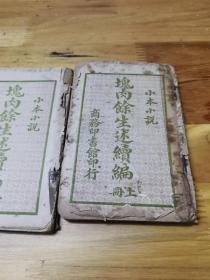 小本小說
塊肉餘生述續編
上冊
商務印書館印行
小本小說
塊肉餘生述續編